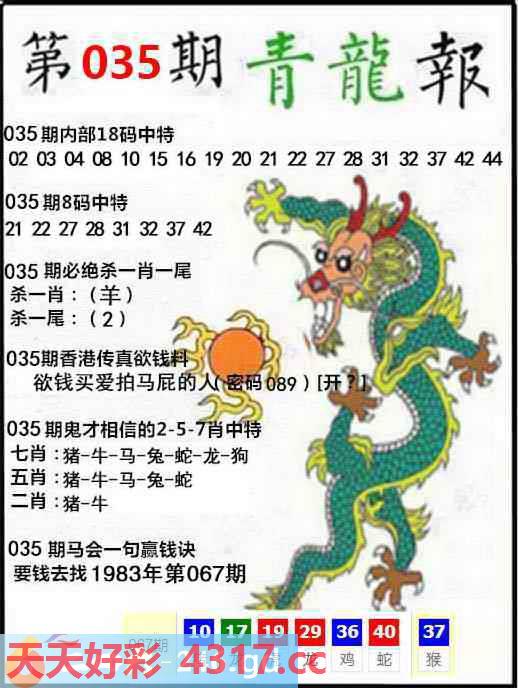 第035期 青龍報
035期内部18码中特
02 03 04 08 10 15 16 19 20 21 22 27 28 31 32 37 42 44
035期8码中特
21 22 27 28 31 32 37 42
035 期必绝杀一肖一尾
杀一肖：（羊）
杀一尾：（2）
035期香港传真欲钱料
欲钱买爱拍马屁的人（密码089）[开？]
035期鬼才相信的2-5-7肖中特
七肖：猪-牛-马-兔-蛇-龙-狗
五肖：猪-牛-马-兔-蛇
二肖：猪-牛
035 期马会一句赢钱诀
要钱去找1983年第067期
10 17 19 29 36 40 37
龙 鸡 蛇 猴
天天好彩 4317.cc